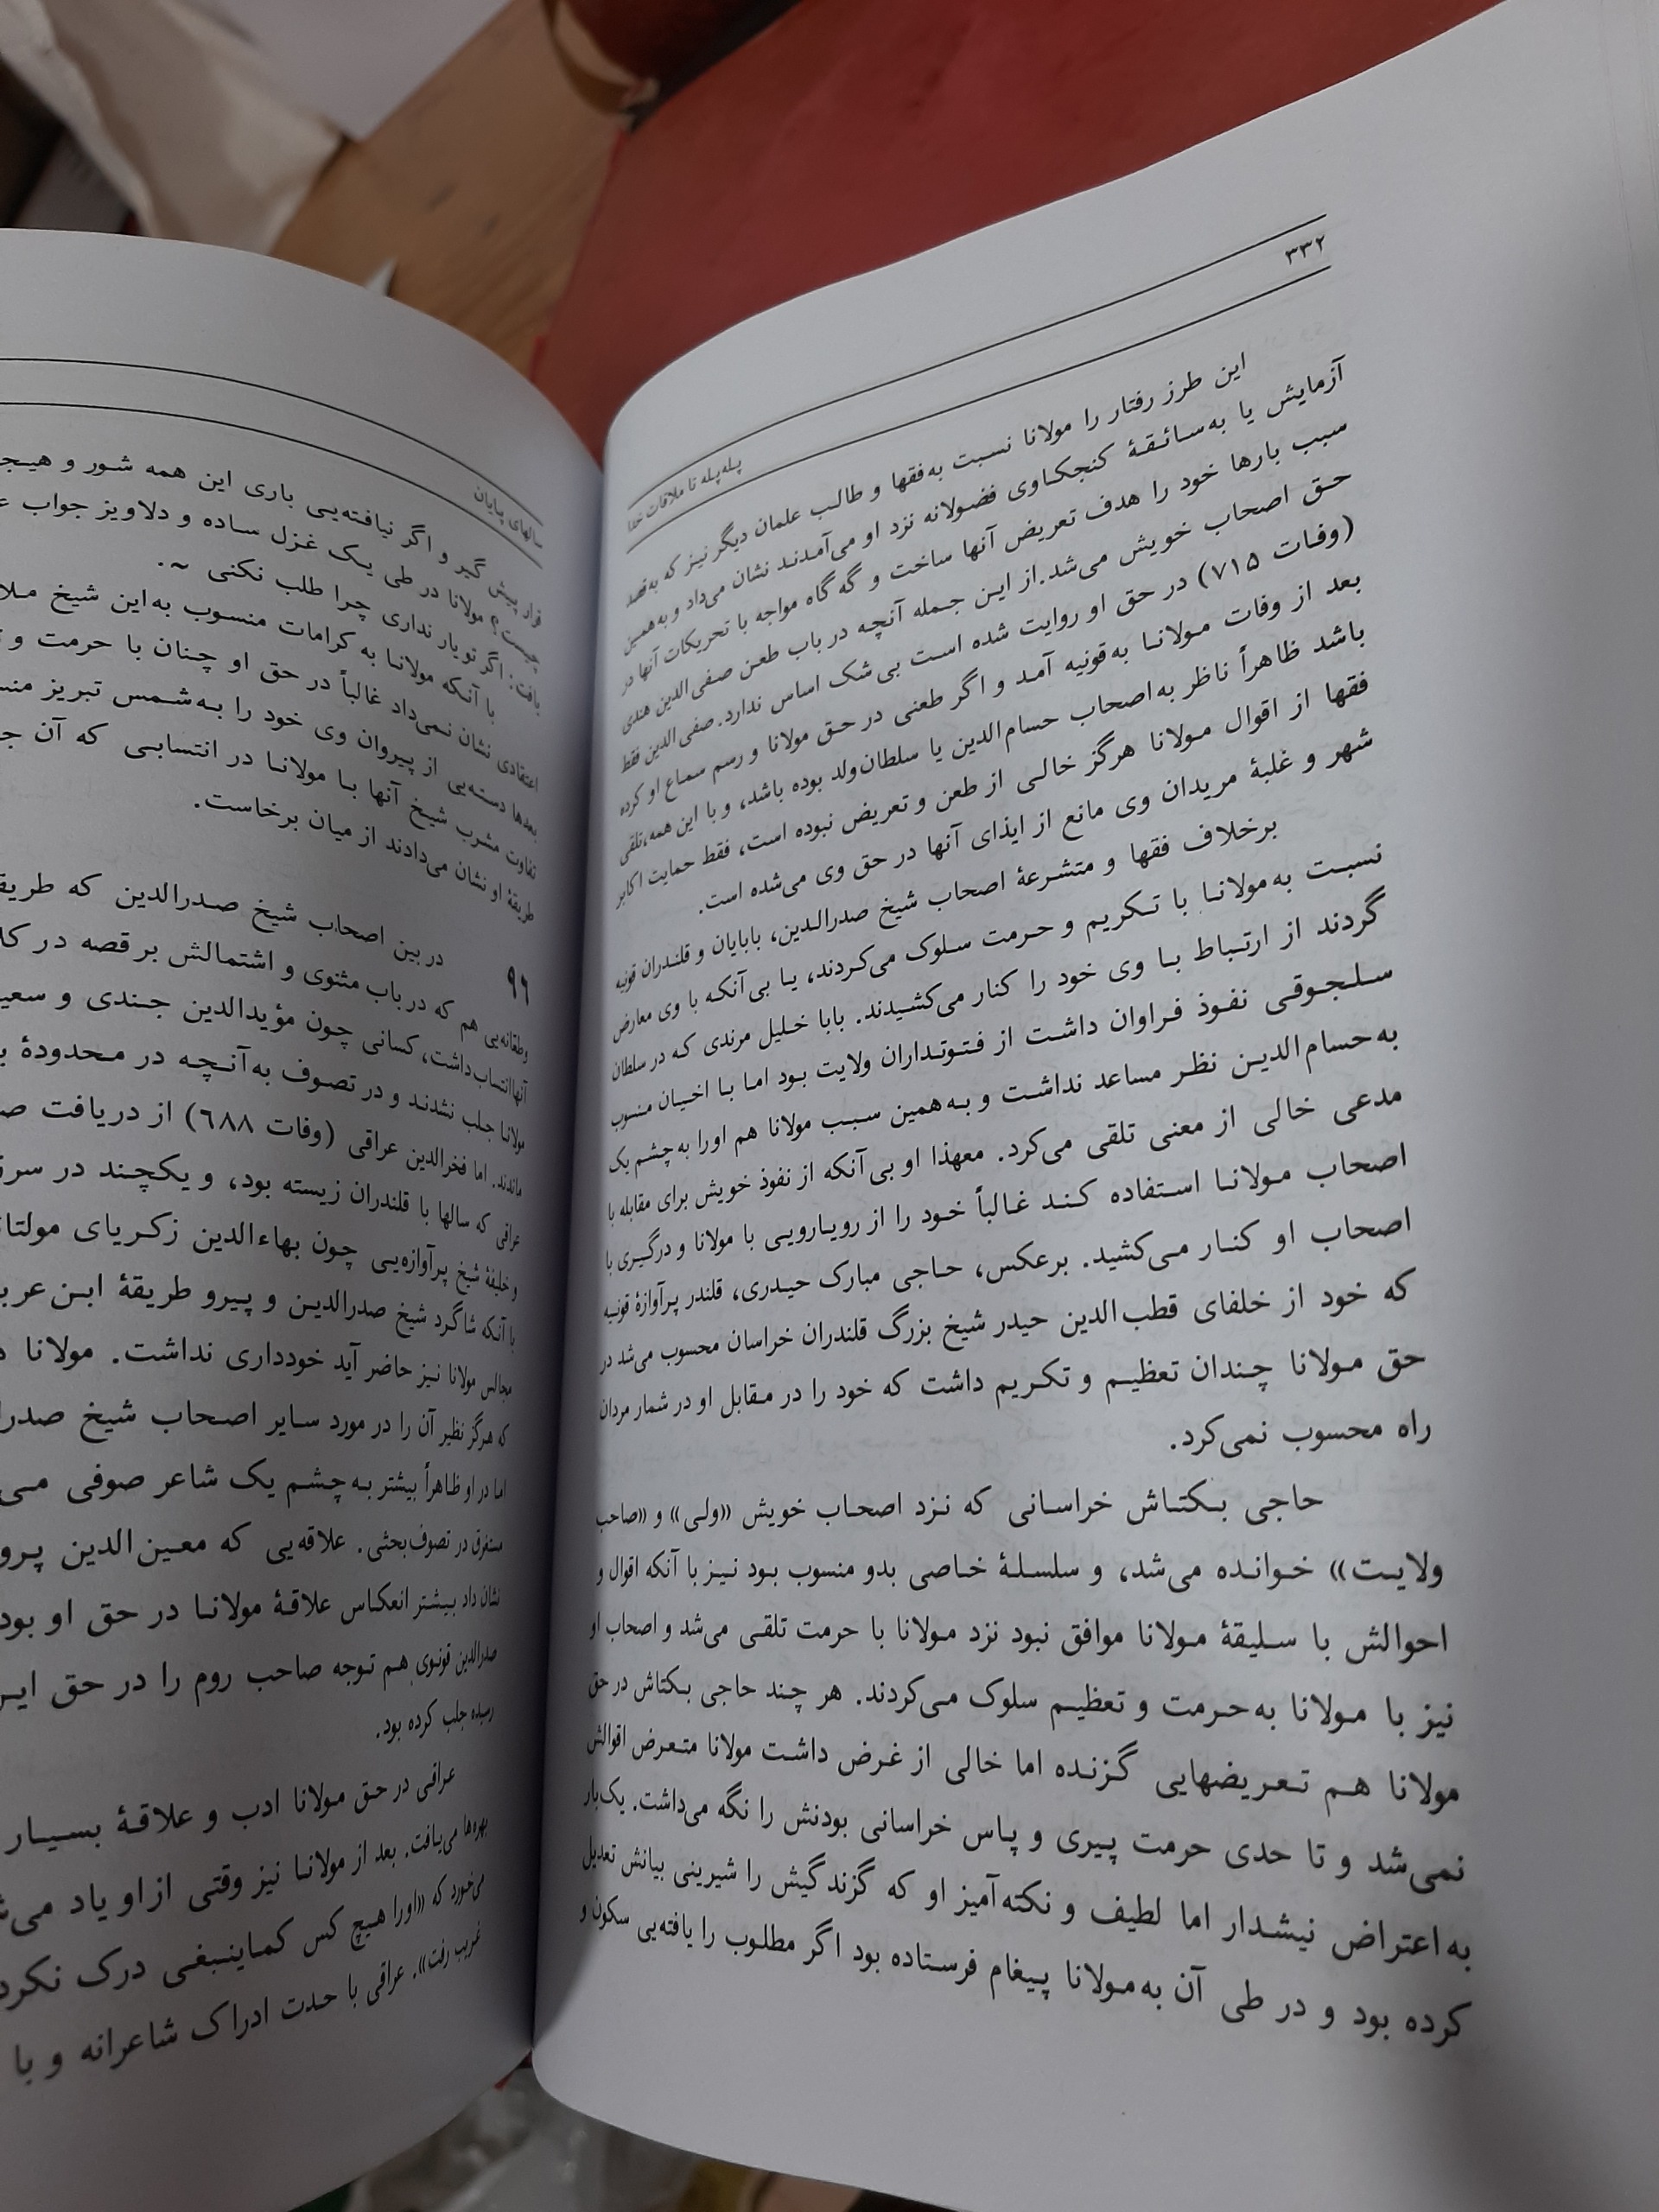 ۳۳۲
پله‌پله تا ملاقات خدا
این طرز رفتار را مولانا نسبت به‌فقها و طالب علمان دیگر نیز که به‌قصد
آزمایش یا به‌سائقهٔ کنجکاوی فضولانه نزد او می‌آمدند نشان می‌داد و به‌همین
سبب بارها خود را هدف تعریض آنها ساخت و گه گاه مواجه با تحریکات آنها در
حق اصحاب خویش می‌شد. از این جمله آنچه در باب طعن صفی‌الدین هندی
(وفات ۷۱۵) در حق او روایت شده است بی‌شک اساس ندارد. صفی‌الدین فقط
بعد از وفات مولانا به‌قونیه آمد و اگر طعنی در حق مولانا و رسم سماع او کرده
باشد ظاهراً ناظر به‌اصحاب حسام‌الدین یا سلطان‌ولد بوده باشد، و با این همه، تلقی
فقها از اقوال مولانا هرگز خالی از طعن و تعریض نبوده است، فقط حمایت اکابر
شهر و غلبهٔ مریدان وی مانع از ایذای آنها در حق وی می‌شده است.
برخلاف فقها و متشرعهٔ اصحاب شیخ صدرالدین، بابایان و قلندران قونیه
نسبت به‌مولانا با تکریم و حرمت سلوک می‌کردند، یا بی‌آنکه با وی معارض
گردند از ارتباط با وی خود را کنار می‌کشیدند. بابا خلیل مرندی که در سلطان
سلجوقی نفوذ فراوان داشت از فتوتداران ولایت بود اما با اخیان منسوب
به‌حسام‌الدین نظر مساعد نداشت و به‌همین سبب مولانا هم اورا به‌چشم یک
مدعی خالی از معنی تلقی می‌کرد. معهذا او بی‌آنکه از نفوذ خویش برای مقابله با
اصحاب مولانا استفاده کند غالباً خود را از رویارویی با مولانا و درگیری با
اصحاب او کنار می‌کشید. برعکس، حاجی مبارک حیدری، قلندر پرآوازهٔ قونیه
که خود از خلفای قطب‌الدین حیدر شیخ بزرگ قلندران خراسان محسوب می‌شد در
حق مولانا چندان تعظیم و تکریم داشت که خود را در مقابل او در شمار مردان
راه محسوب نمی‌کرد.
حاجی بکتاش خراسانی که نزد اصحاب خویش «ولی» و «صاحب
ولایت» خوانده می‌شد، و سلسلهٔ خاصی بدو منسوب بود نیز با آنکه اقوال و
احوالش با سلیقهٔ مولانا موافق نبود نزد مولانا با حرمت تلقی می‌شد و اصحاب او
نیز با مولانا به‌حرمت و تعظیم سلوک می‌کردند. هر چند حاجی بکتاش در حق
مولانا هم تعریضهایی گزنده اما خالی از غرض داشت مولانا متعرض اقوالش
نمی‌شد و تا حدی حرمت پیری و پاس خراسانی بودنش را نگه می‌داشت. یک‌بار
به‌اعتراض نیشدار اما لطیف و نکته‌آمیز او که گزندگیش را شیرینی بیانش تعدیل
کرده بود و در طی آن به‌مولانا پیغام فرستاده بود اگر مطلوب را یافته‌یی سکون و
سالهای پایان
قرار پیش گیر و اگر نیافته‌یی باری این همه شور و
چیست؟ مولانا در طی یک غزل ساده و دلاویز جواب
یافت: اگر تو یار نداری چرا طلب نکنی ~.
با آنکه مولانا به کرامات منسوب به‌این شیخ
اعتقادی نشان نمی‌داد غالباً در حق او چنان با حرمت و
بعدها دسته‌یی از پیروان وی خود را به‌شمس تبریز
تفاوت مشرب شیخ آنها با مولانا در انتسابی که آن
طریقهٔ او نشان می‌دادند از میان برخاست.
۹۶
در بین اصحاب شیخ صدرالدین که
وطقانه‌یی هم که در باب مثنوی و اشتمالش بر قصه در
آنها انتساب داشت، کسانی چون مؤیدالدین جندی و
مولانا جلب نشدند و در تصوف به‌آنچه در محدودهٔ
ماندند. اما فخرالدین عراقی (وفات ۶۸۸) از دریافت
عراقی که سالها با قلندران زیسته بود، و یکچند در
و خلیفهٔ شیخ پرآوازه‌یی چون بهاءالدین زکریای
با آنکه شاگرد شیخ صدرالدین و پیرو طریقهٔ ابن
مجالس مولانا نیز حاضر آید خودداری نداشت. مولانا
که هرگز نظیر آن را در مورد سایر اصحاب شیخ
اما در او ظاهراً بیشتر به‌چشم یک شاعر صوفی
مستغرق در تصوف بحثی. علاقه‌یی که معین‌الدین
نشان داد بیشتر انعکاس علاقهٔ مولانا در حق او بود
صدرالدین قونوی هم توجه صاحب روم را در حق
رسیده جلب کرده بود.
عراقی در حق مولانا ادب و علاقهٔ بسیار
بهره‌ها می‌یافت. بعد از مولانا نیز وقتی از او یاد
می‌خورد که «اورا هیچ کس کماینبغی درک
غریب رفت». عراقی با حدت ادراک شاعرانه و با